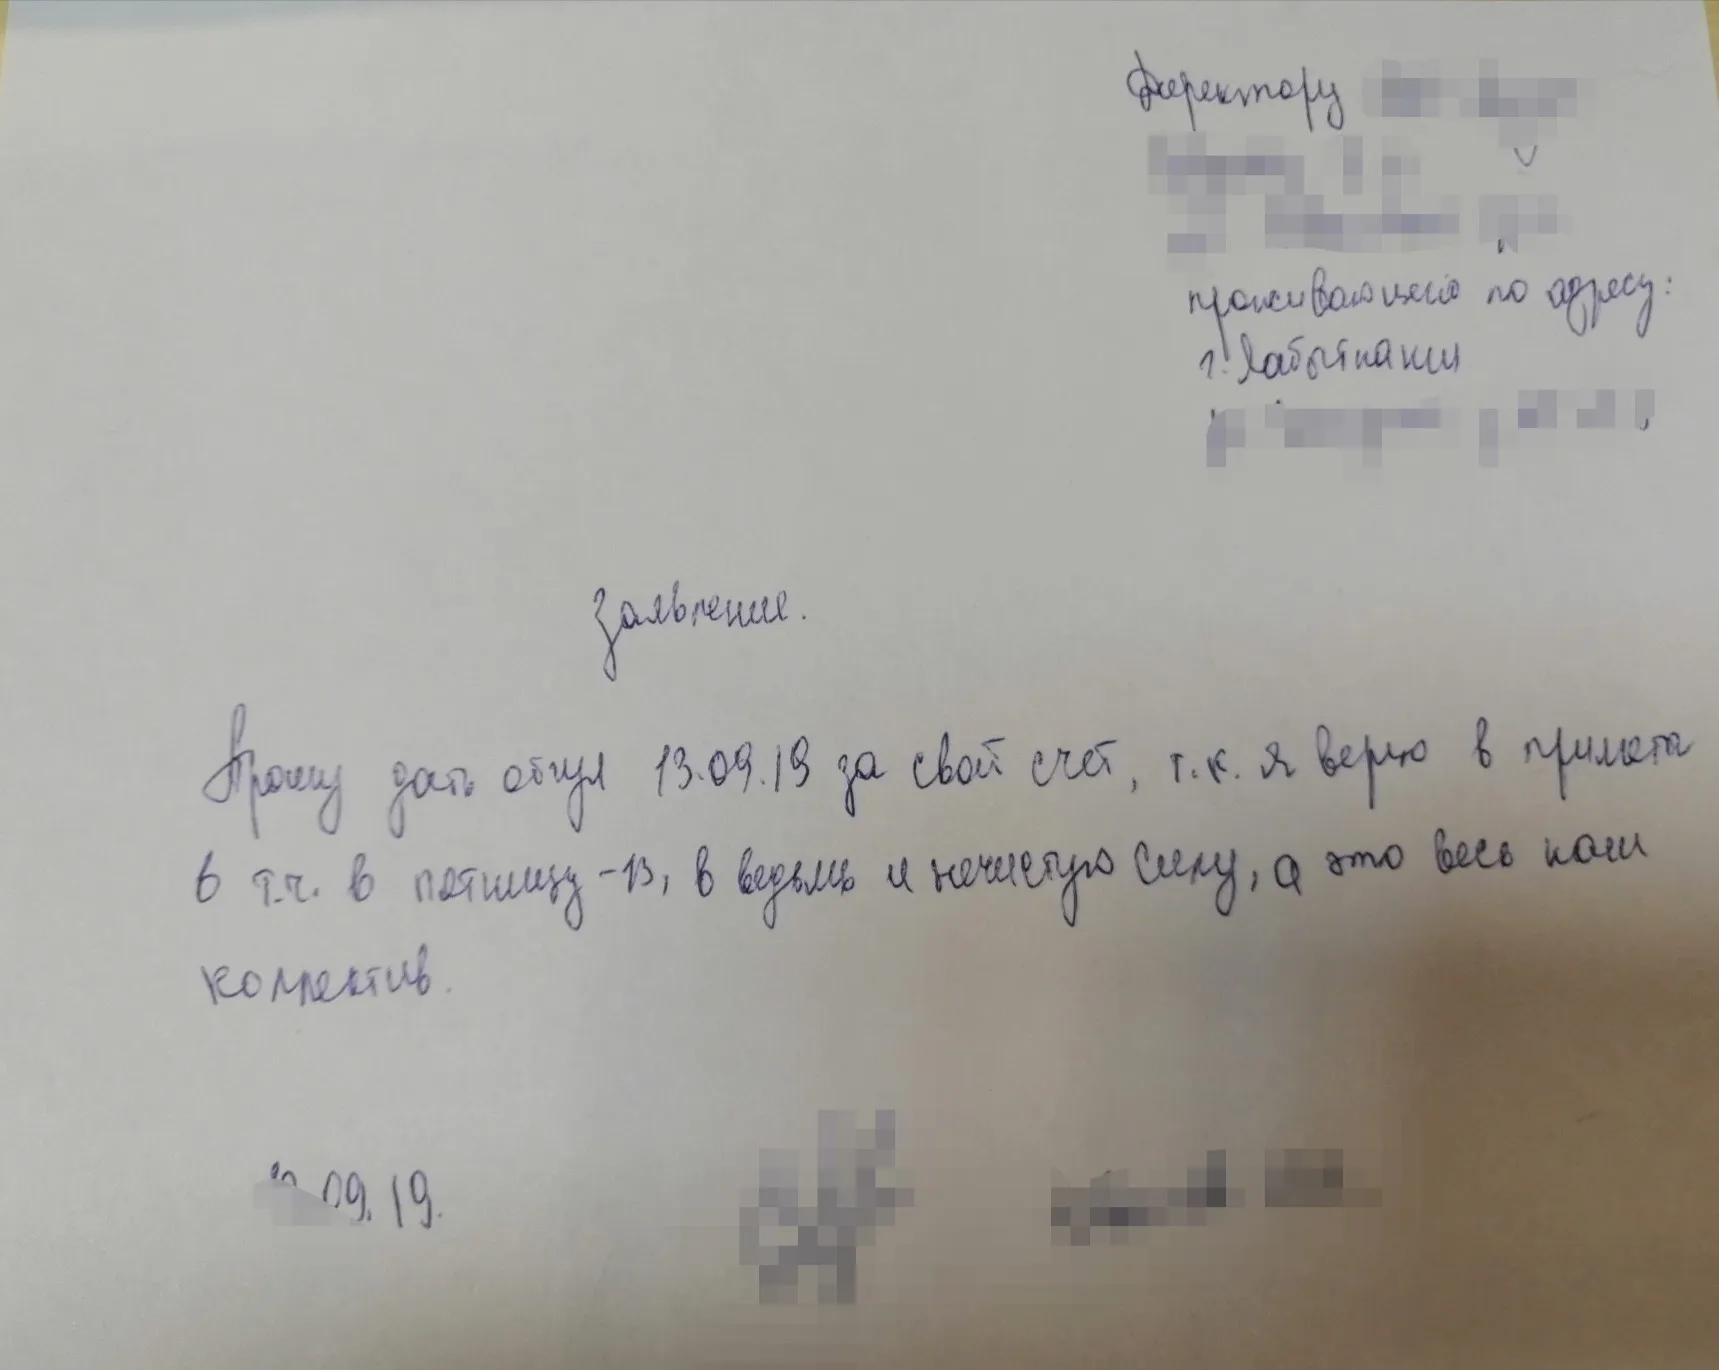 Директору
проживающего по адресу:
г. Лабытнанги
Заявление.
Прошу дать отгул 13.09.19 за свой счет, т.к. я верю в примета
в т.ч. в пятницу-13, в ведьмь и нечистую силу, а это весь наш
коллектив.
09.19.